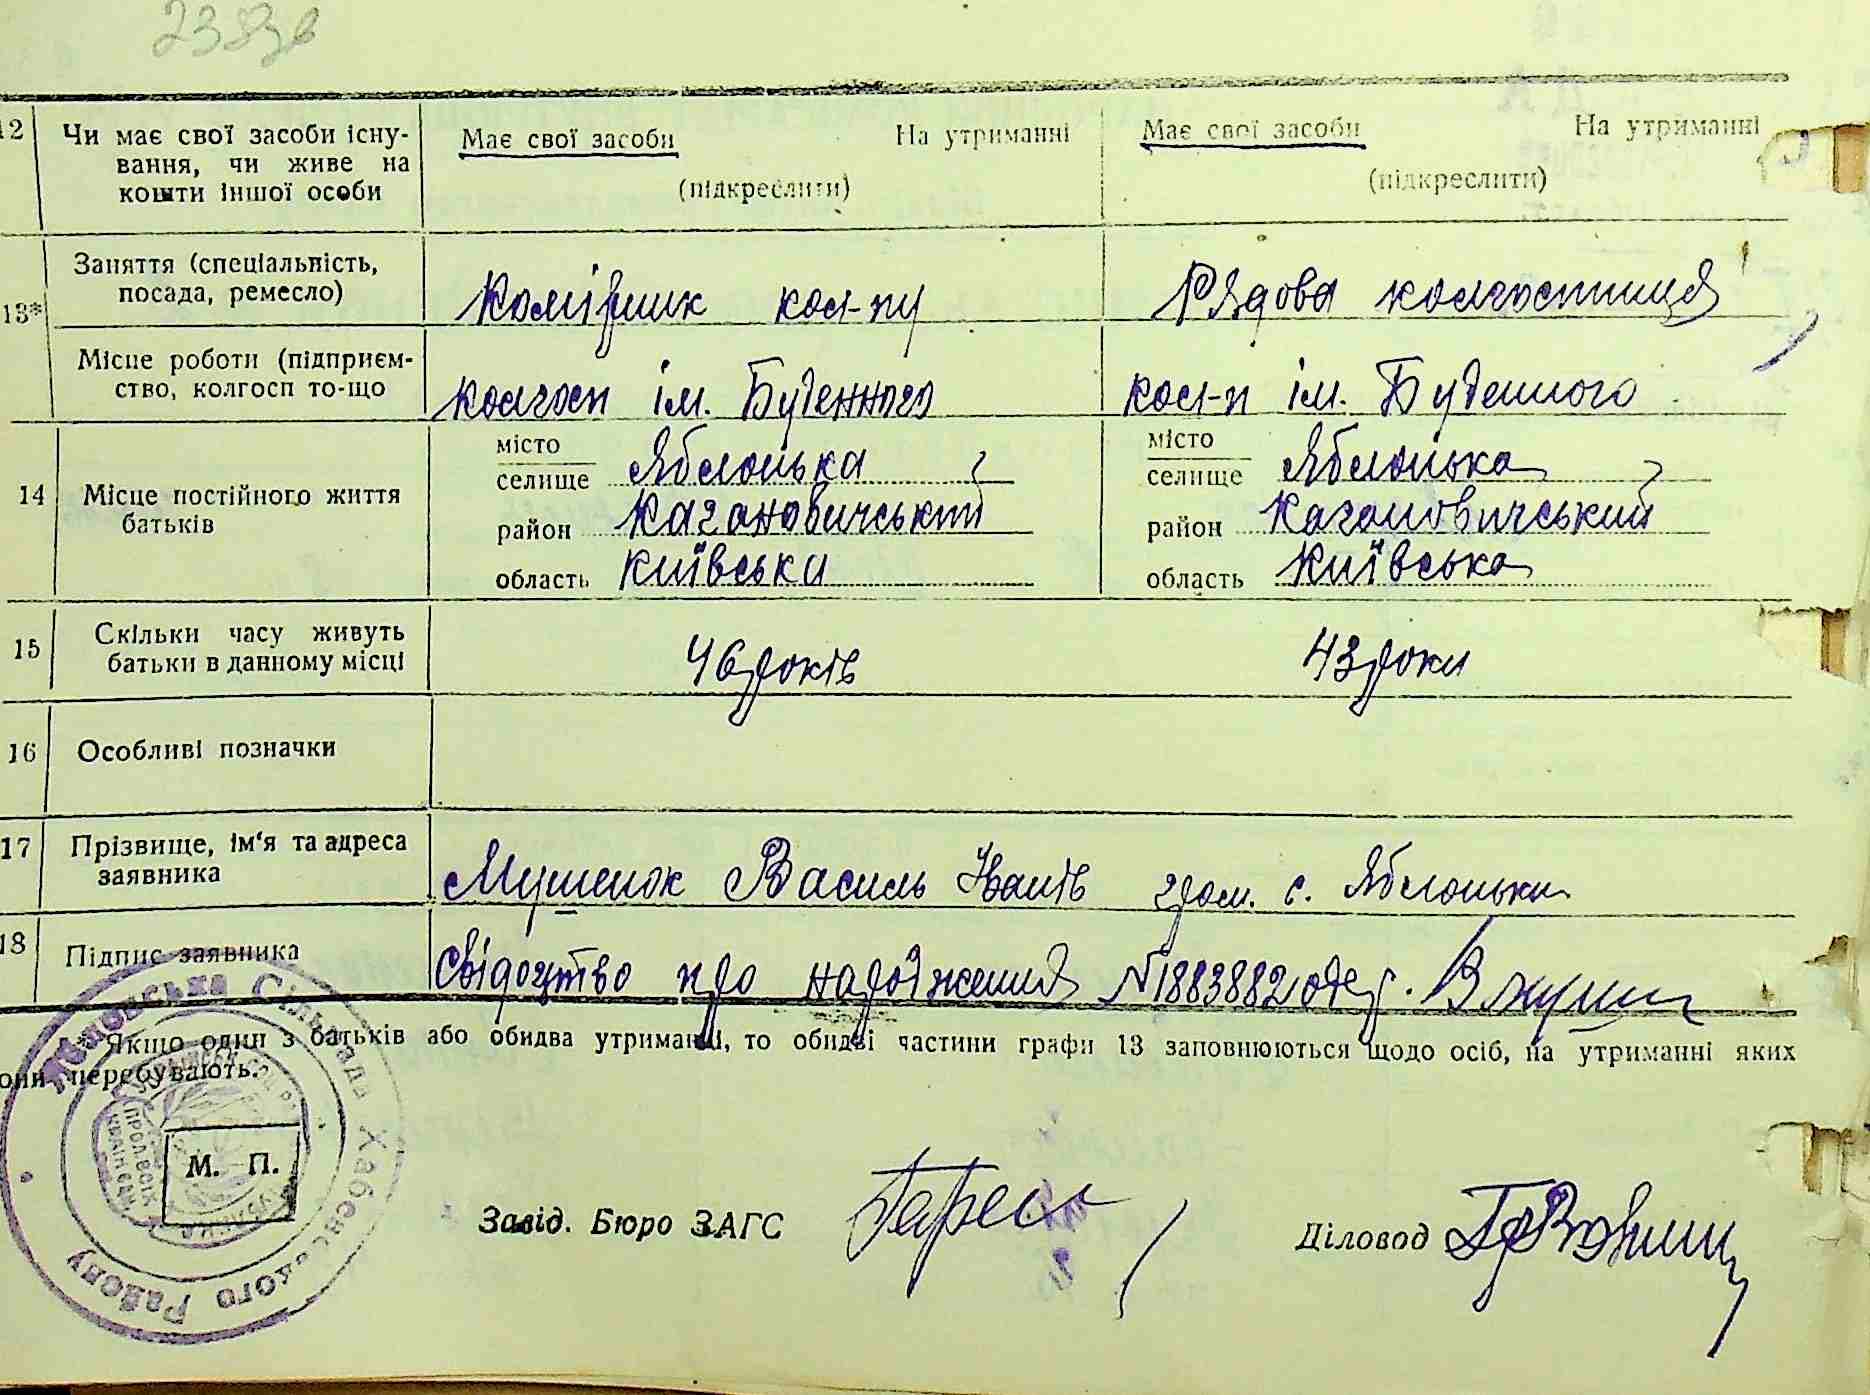 12 Чи має свої засоби існу-
вання, чи живе на
кошти іншої особи
Має свої засоби На утриманні
(підкреслити)
Має свої засоби На утриманні
(підкреслити)
13* Заняття (спеціальність,
посада, ремесло)
Комірник кол-пу
Рядова колгоспниця
Місце роботи (підприєм-
ство, колгосп то-що
колгосп ім. Буденного
кол-п ім. Буденного
14 Місце постійного життя
батьків
місто
селище Яблонька
район Кагановичський
область Київська
місто
селище Яблонька
район Кагановичський
область Київська
15 Скільки часу живуть
батьки в данному місці
46 років
43 роки
16 Особливі позначки
17 Прізвище, ім'я та адреса
заявника
Мушенок Василь Іванів гром. с. Яблонька
18 Підпис заявника
Свідоцтво про народження №1883882
* Якщо один з батьків або обидва утриманці, то обидві частини графи 13 заповнюються щодо осіб, на утриманні яких
они перебувають.
Сільрада Хабенського Району
ПРОЛ. ВСІХ
М. П.
Завід. Бюро ЗАГС
Діловод